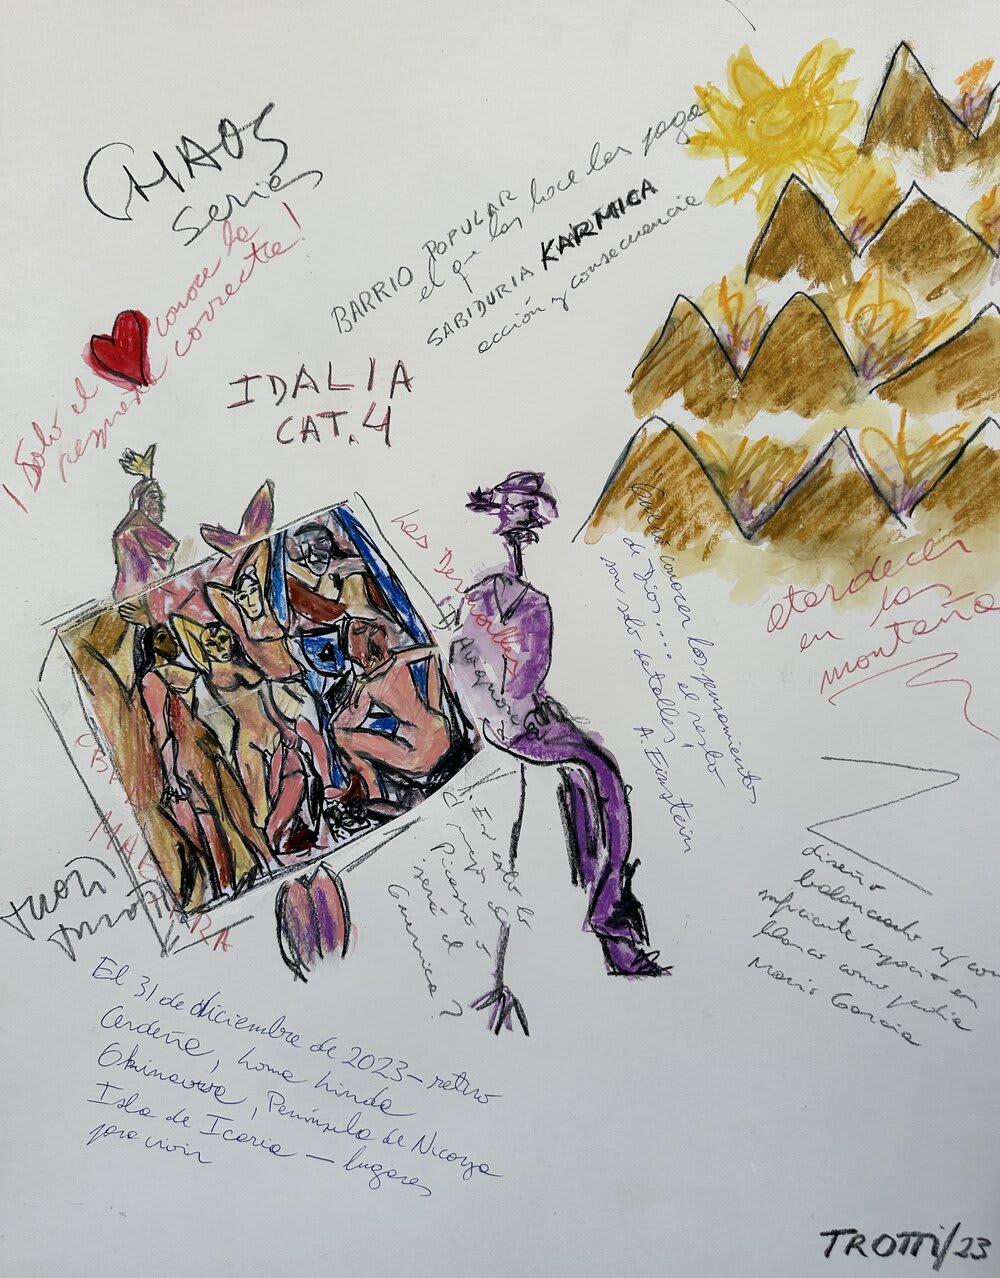 CHAOS
series
¡Solo el conoce la
respuesta correcta!
BARRIO POPULAR
el que las hace las paga
SABIDURIA KARMICA
acción y consecuencia
IDALIA
CAT. 4
Les Demoiselles
D'Avignon
"Quiero conocer los pensamientos
de Dios.... el resto
son solo detalles"
A. Einstein
atardecer
en las
montañas
¿Es esto lo
mejor de
Picasso o
será el
Guernica?
diseño
balanceado y/ con
suficiente espacio en
blanco como pedía
Mario García
El 31 de diciembre de 2023 – retiro
Cerdeña, Loma Linda
Okinawa, Península de Nicoya
Isla de Icaria – lugares
para vivir
TROTTI/23